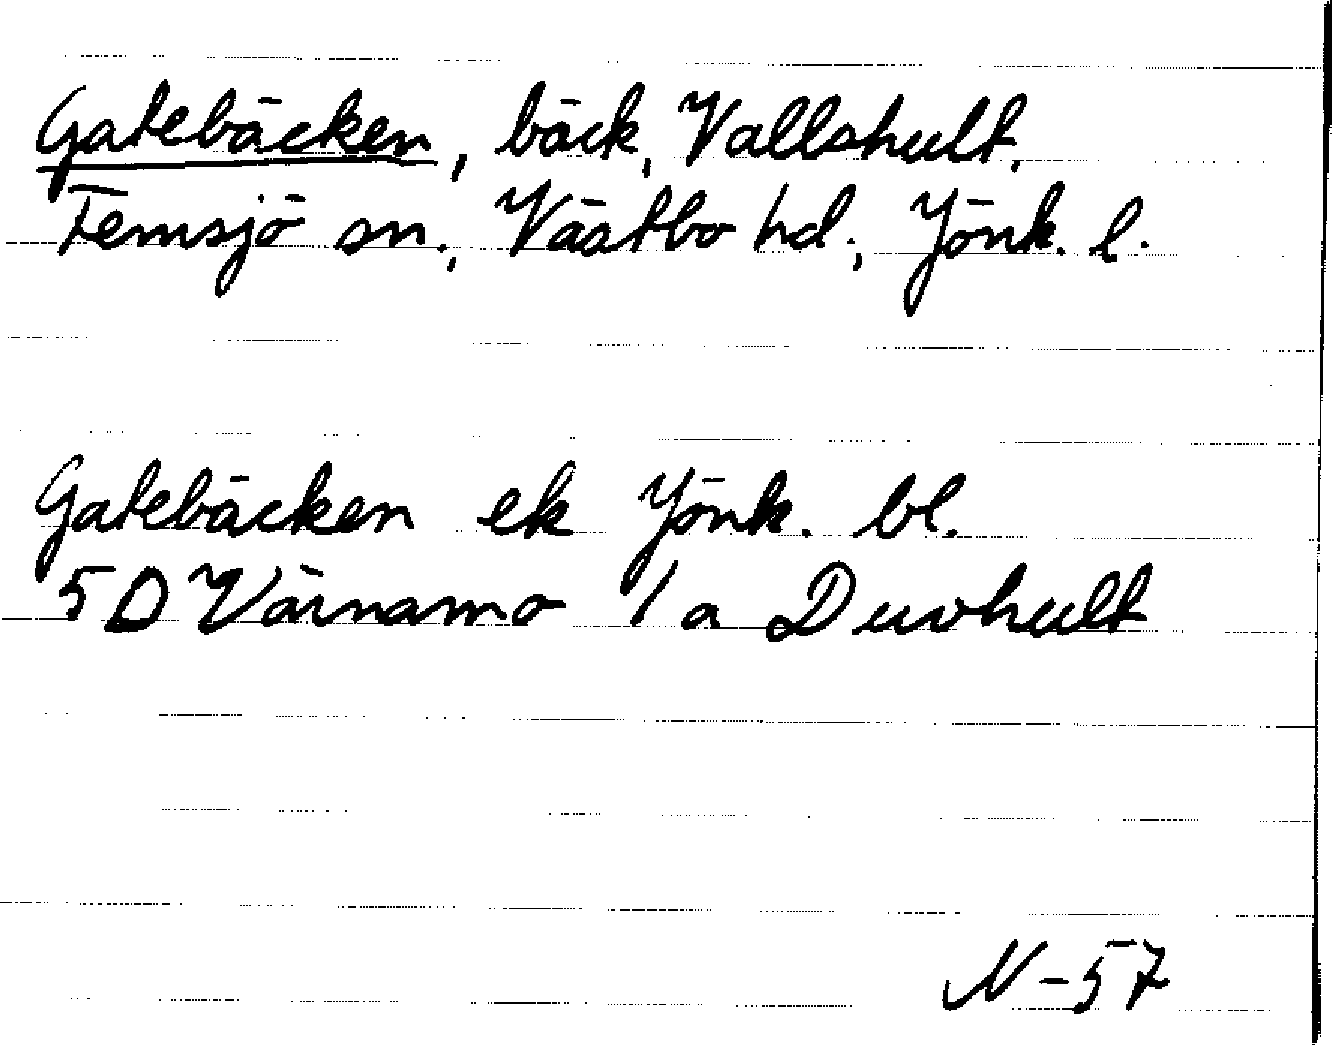 Gatebäcken, bäck, Vallshult,
Femsjö sn., Västbo hd., Jönk. l.
Gatebäcken ek Jönk. bl.
5 D Värnamo 1 a Duvhult
N-57